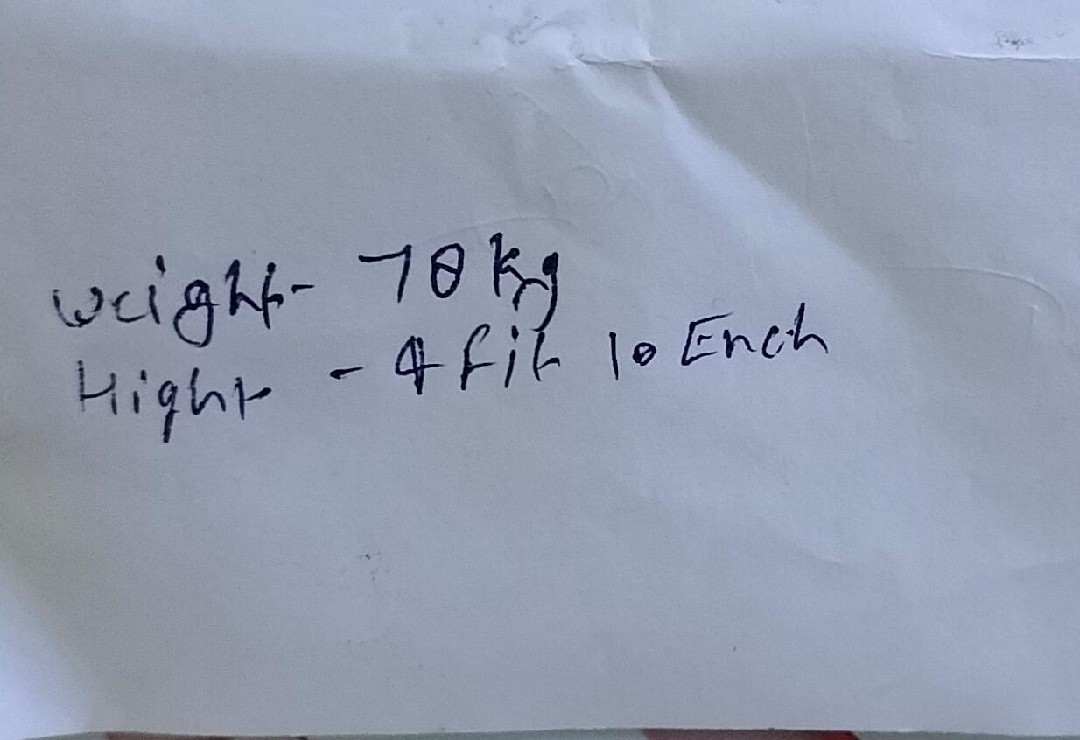 weight- 70 kg
Hight - 4 fit 10 Ench